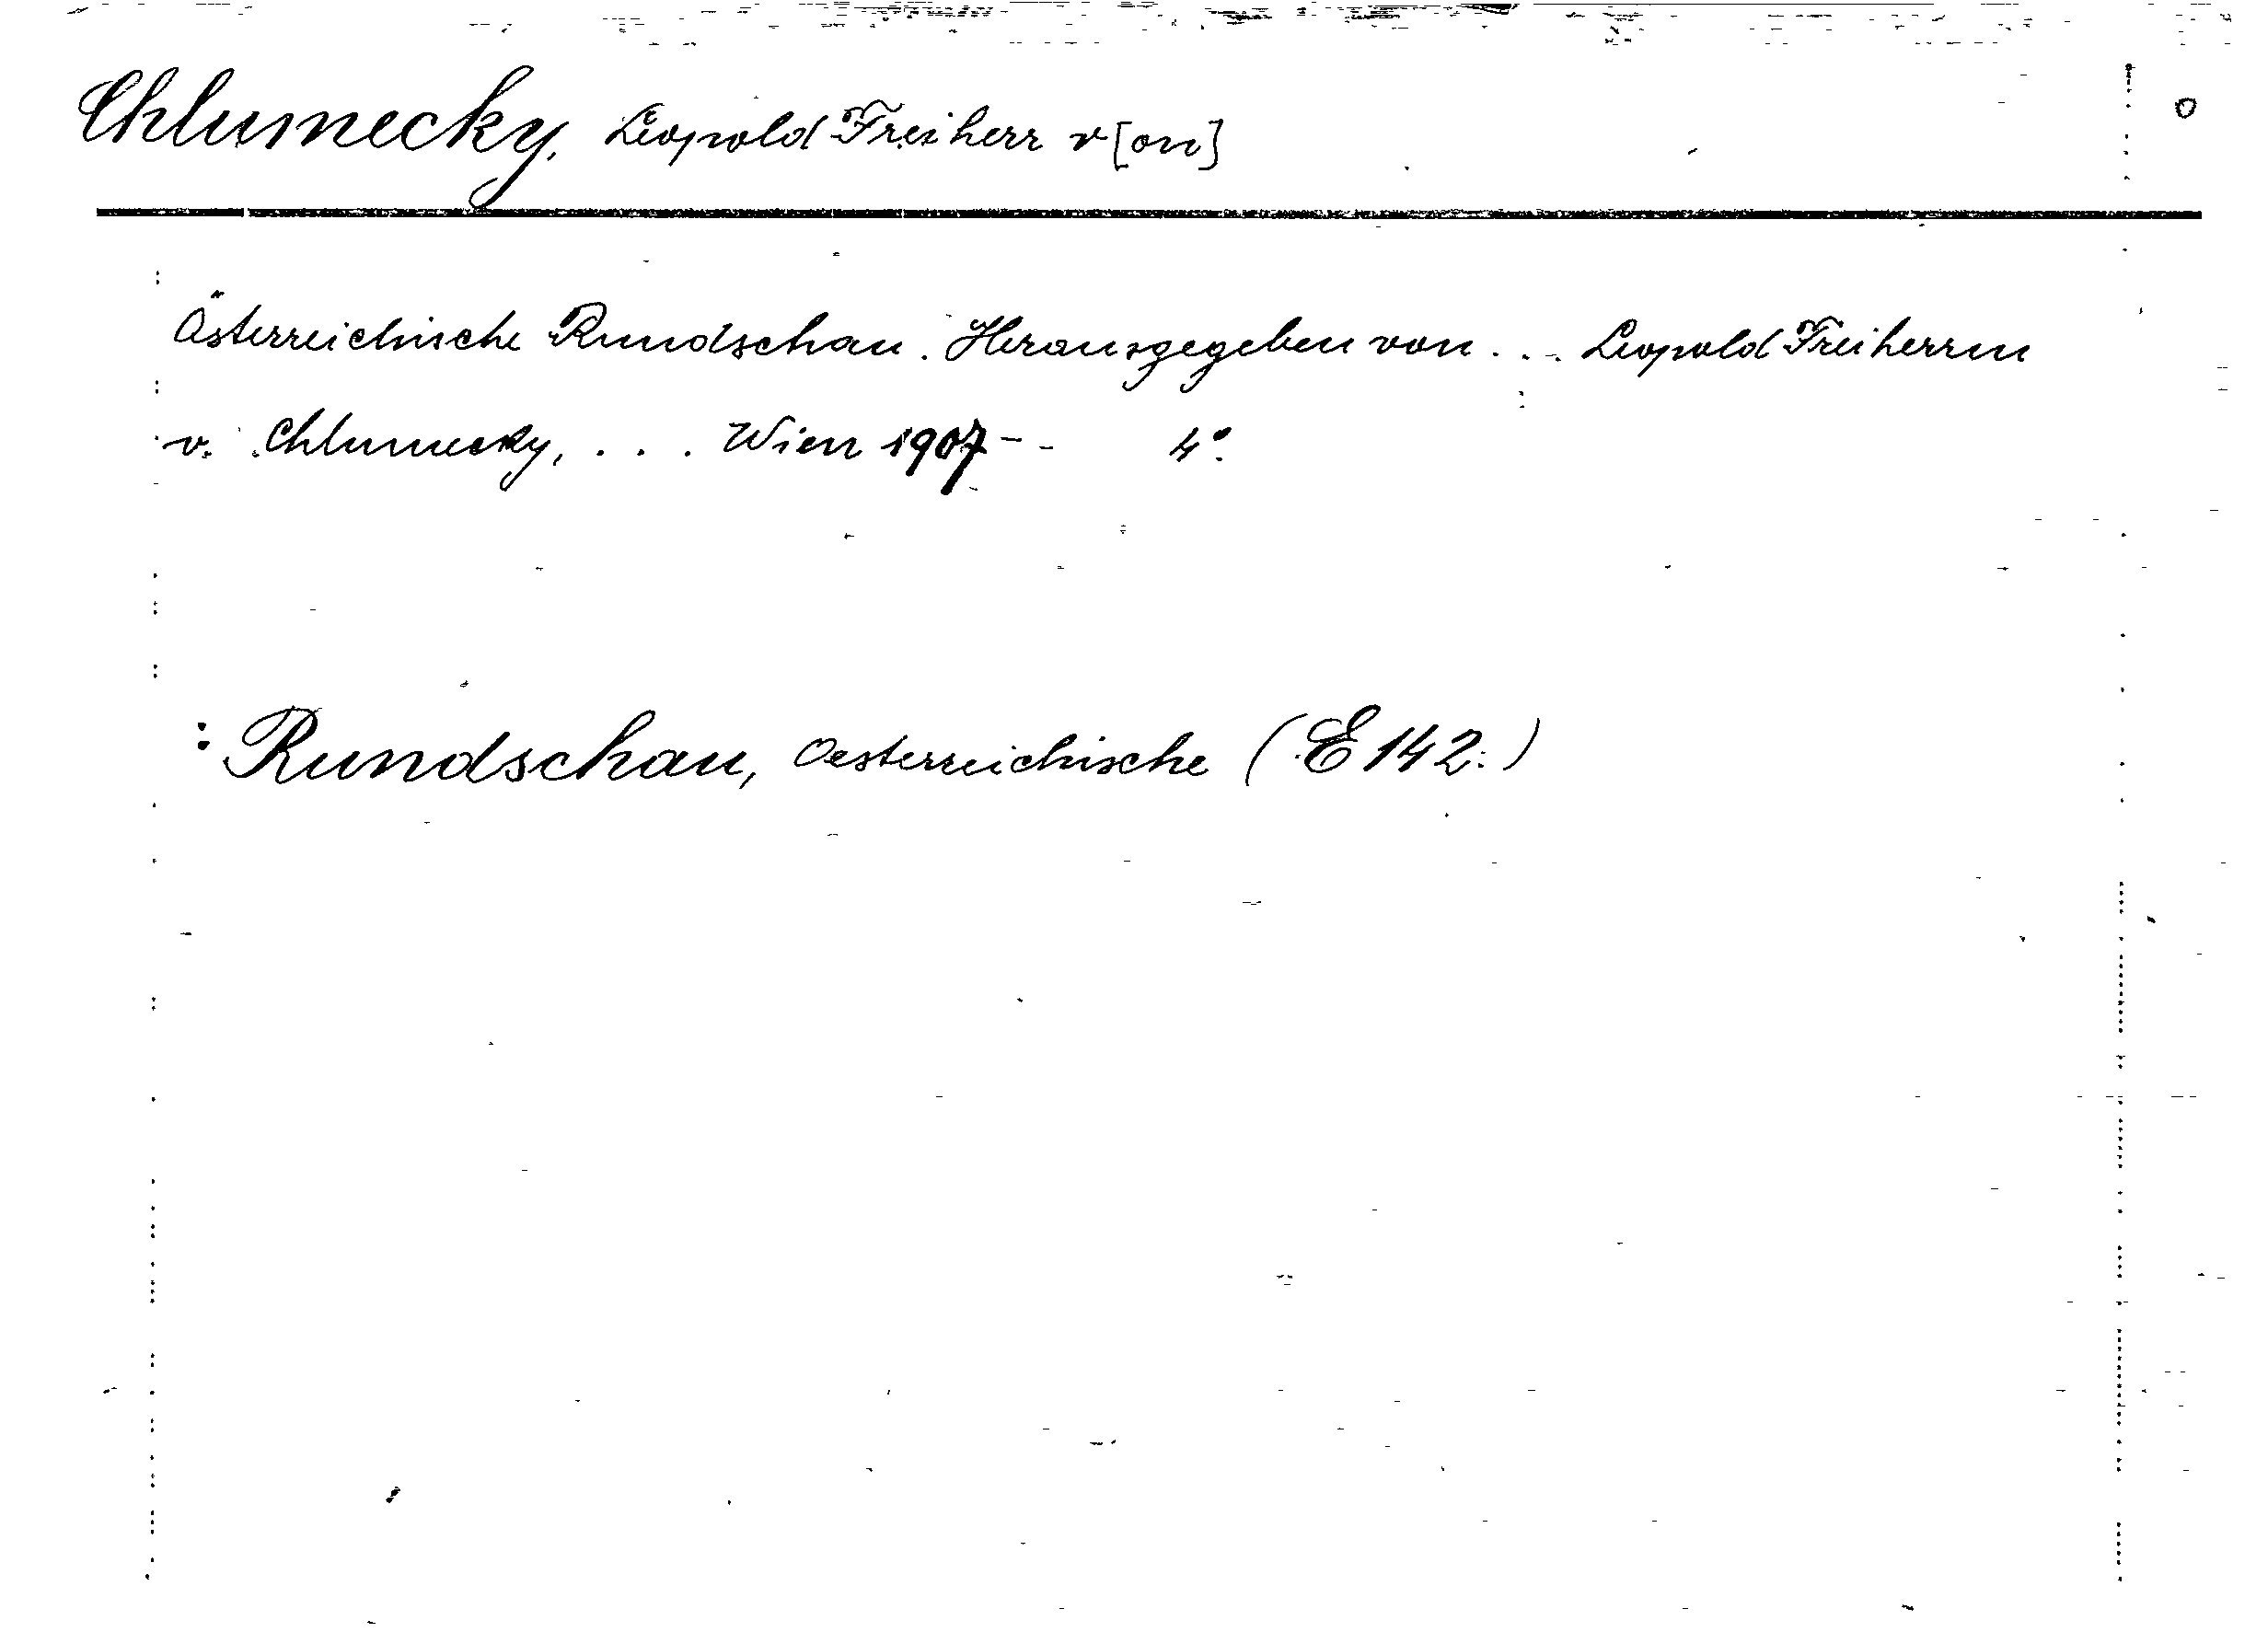 Chlumecky, Leopold Freiherr v[on]
Österreichische Rundschau. Herausgegeben von... Leopold Freiherrn
v. Chlumecky, ... Wien 1907-- 4°.
: Rundschau, Oesterreichische (E 142.)